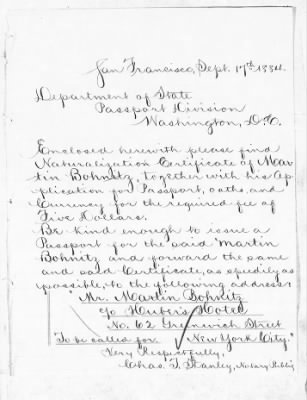 San Francisco, Sept. 17th 1884.
Department of State
Passport Division
Washington, D.C.
Enclosed herewith please find
Naturalization Certificate of Mar-
tin Bohnitz, together with his Ap-
plication for Passport, oaths, and
Currency for the required fee of
Five Dollars.
Be kind enough to issue a
Passport for the said Martin
Bohnitz and forward the same
and said Certificate, as speedily as
possible, to the following address:
"Mr. Martin Bohnitz
c/o Huber's Hotel
No. 62 Greenwich Street
To be called for. New York City."
Very Respectfully,
Chas. T. Stanley, Notary Public